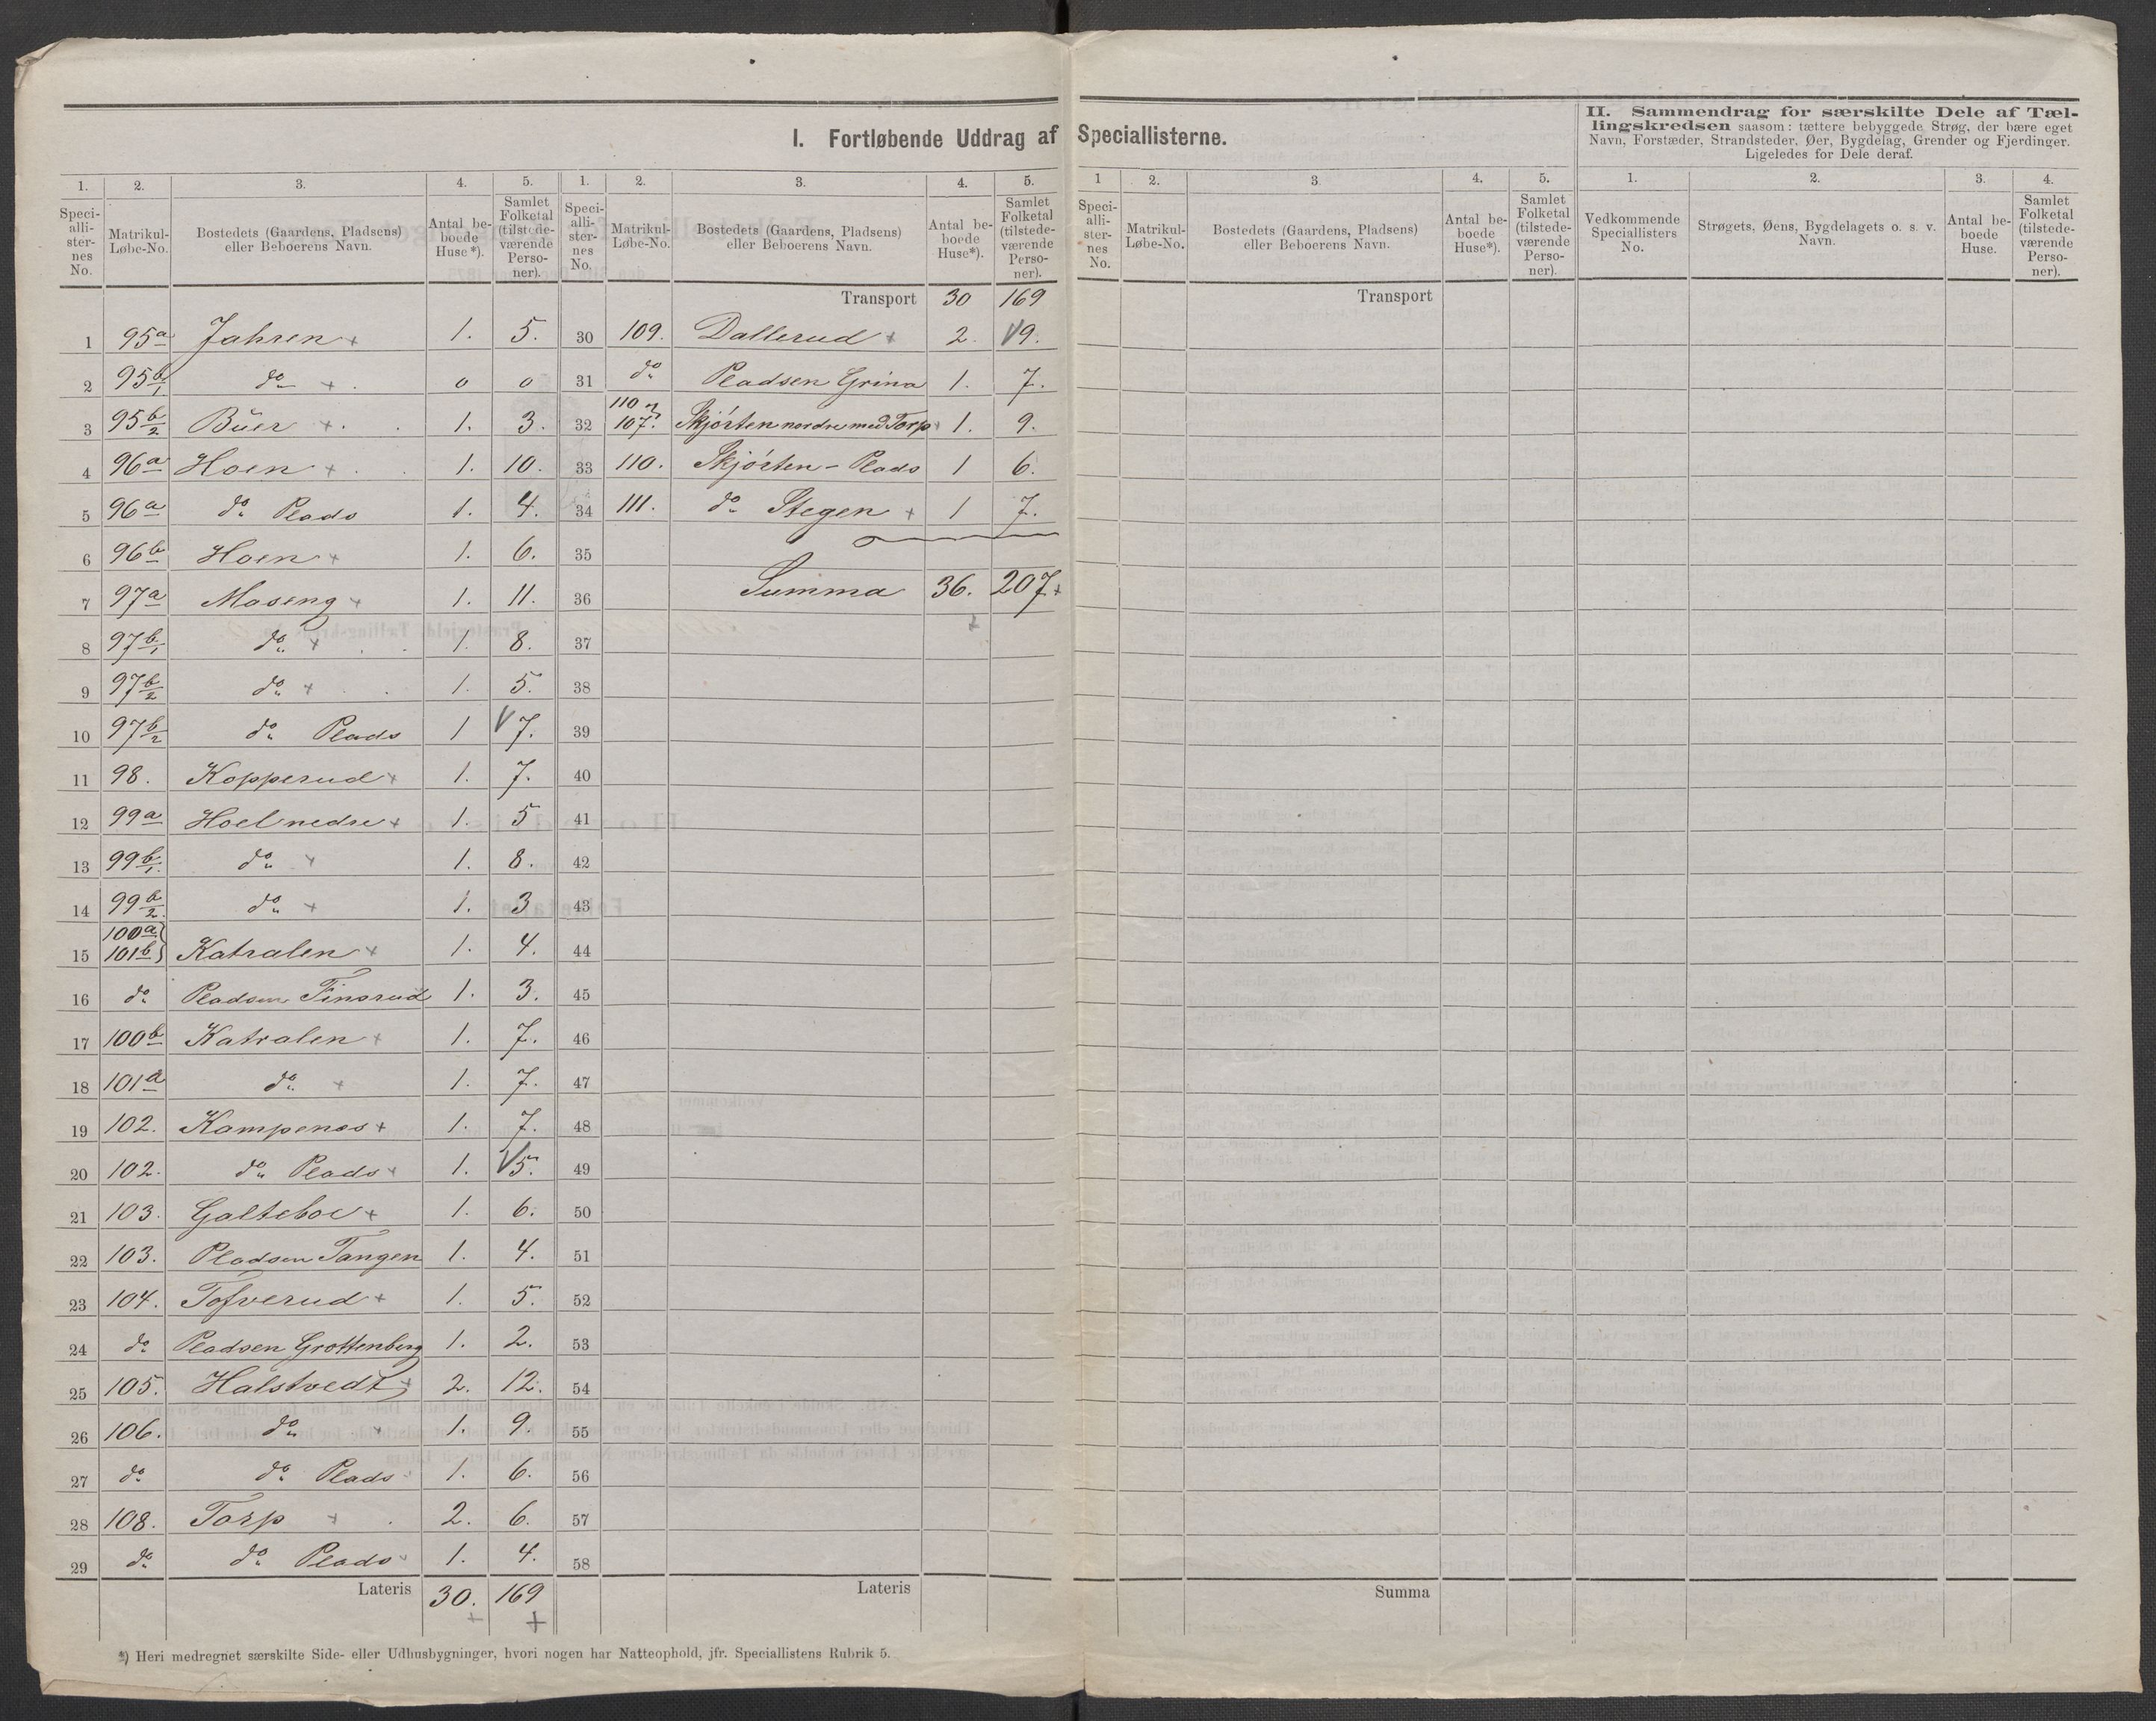 I. Fortløbende Uddrag af Speciallisterne.
II. Sammendrag for særskilte Dele af Tæl-
lingskredsen saasom: tættere bebyggede Strøg, der bære eget
Navn, Forstæder, Strandsteder, Øer, Bygdelag, Grender og Fjerdinger.
Ligeledes for Dele deraf.
1. 2. 3. 4. 5.
Speci-alli-ster-nes No. Matrikul-Løbe-No. Bostedets (Gaardens, Pladsens) eller Beboerens Navn. Antal be-boede Huse*). Samlet Folketal (tilstede-værende Perso-ner).
1 95a Jahren + 1. 5.
2 95b/1 do + . 0 0
3 95b/2 Büer + . . 1. 3.
4 96a Hoen + . . 1. 10.
5 96a do Plads 1. 4.
6 96b Hoen + 1. 6.
7 97a Moseng + 1. 11.
8 97b/1 do + . . 1. 8.
9 97b/2 do + . . 1. 5.
10 97b/2 do Plads 1 7.
11 98. Kopperud + 1. 7.
12 99a Hoel nedre + 1. 5
13 99b/1. do + 1. 8.
14 99b/2. do + 1. 3
15 100a} 101b} Katralen + 1. 4.
16 do Pladsen Finsrud 1. 3.
17 100b Katralen + 1. 7.
18 101a do + 1. 7.
19 102. Kampenæs + 1. 7.
20 102. do Plads + 1. 5.
21 103. Galteboe + 1. 6.
22 103. Pladsen Tangen 1. 4.
23 104. Tofverud + 1. 5.
24 do Pladsen Grottenberg 1. 2.
25 105. Halstvedt + 2. 12.
26 106. do + 1. 9.
27 do do Plads 1. 6.
28 108. Torp + . 2. 6.
29 do do Plads 1. 4.
Lateris 30. 169
+ +
1. 2. 3. 4. 5.
Speci-alli-ster-nes No. Matrikul-Løbe-No. Bostedets (Gaardens, Pladsens) eller Beboerens Navn. Antal be-boede Huse*). Samlet Folketal (tilstede-værende Perso-ner).
Transport 30 169
30 109. Dallerud + 2. 9.
31 do Pladsen Grina 1. 7.
32 110 } 107. Skjórten nordre med Torp + 1. 9.
33 110. Skjórten - Plads 1 6.
34 111. do Stegen + 1 7.
35
36 Summa 36. 207. +
+
37
38
39
40
41
42
43
44
45
46
47
48
49
50
51
52
53
54
55
56
57
58
Lateris
1 2. 3 4. 5.
Speci-alli-ster-nes No. Matrikul-Løbe-No. Bostedets (Gaardens, Pladsens) eller Beboerens Navn. Antal be-boede Huse*). Samlet Folketal (tilstede-værende Perso-ner).
Transport
Summa
1. 2. 3. 4.
Vedkommende Speciallisters No. Strøgets, Øens, Bygdelagets o. s. v. Navn. Antal be-boede Huse. Samlet Folketal (tilstede-værende Perso-ner).
*) Heri medregnet særskilte Side- eller Udhusbygninger, hvori nogen har Natteophold, jfr. Speciallistens Rubrik 5.